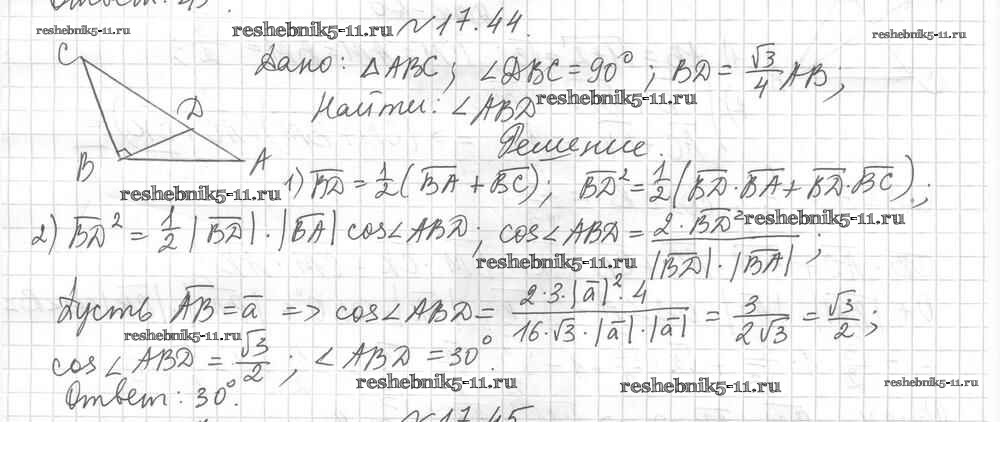 Ответ: 45°.
reshebnik5-11.ru reshebnik5-11.ru №17.44. reshebnik5-11.ru
C
Дано: △ABC; ∠DBC = 90°; BD = √3/4 AB;
Найти: ∠ABD reshebnik5-11.ru
D
Решение.
B A
reshebnik5-11.ru 1) BD̅ = 1/2 (BA̅ + BC̅); BD̅² = 1/2 (BD̅ · BA̅ + BD̅ · BC̅);
2) BD̅² = 1/2 |BD̅| · |BA̅| cos∠ABD; cos∠ABD = 2 · BD̅² / |BD̅| · |BA̅|; reshebnik5-11.ru
reshebnik5-11.ru
Пусть AB̅ = a̅ => cos∠ABD = 2·3·|a̅|²·4 / 16·√3·|a̅|·|a̅| = 3/2√3 = √3/2;
reshebnik5-11.ru
cos∠ABD = √3/2; ∠ABD = 30°.
reshebnik5-11.ru reshebnik5-11.ru reshebnik5-11.ru
Ответ: 30°.
№17.45